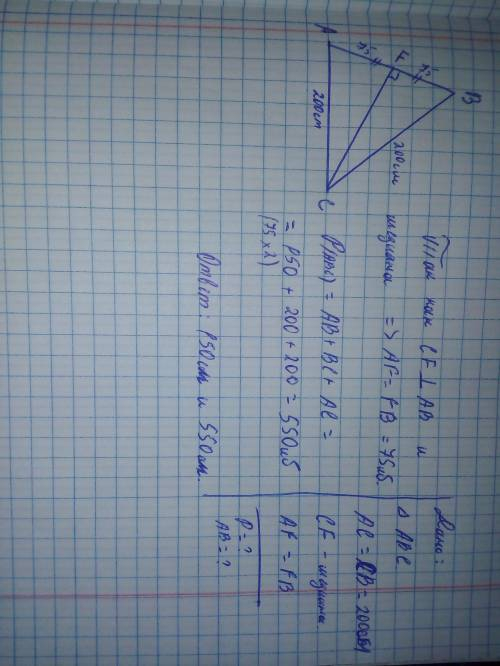 A
F
B
C
75
75
200см
200см
Так как CF ⊥ AB и
медиана => AF = FB = 75см.
P(ABC) = AB + BC + AC =
= 150 + 200 + 200 = 550см
(75 x 2)
Ответ: 150см и 550см.
Дано:
Δ ABC
AC = CB = 200см
CF - медиана.
AF = FB
P = ?
AB = ?